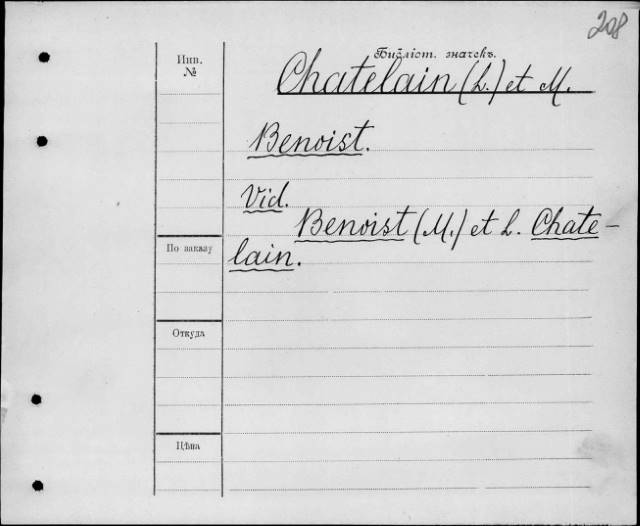 208
Инв.
№
Библіот. значекъ.
Chatelain (L.) et M.
Benoist.
Vid.
Benoist (M.) et L. Chate-
lain.
По заказу
Откуда
Цѣна